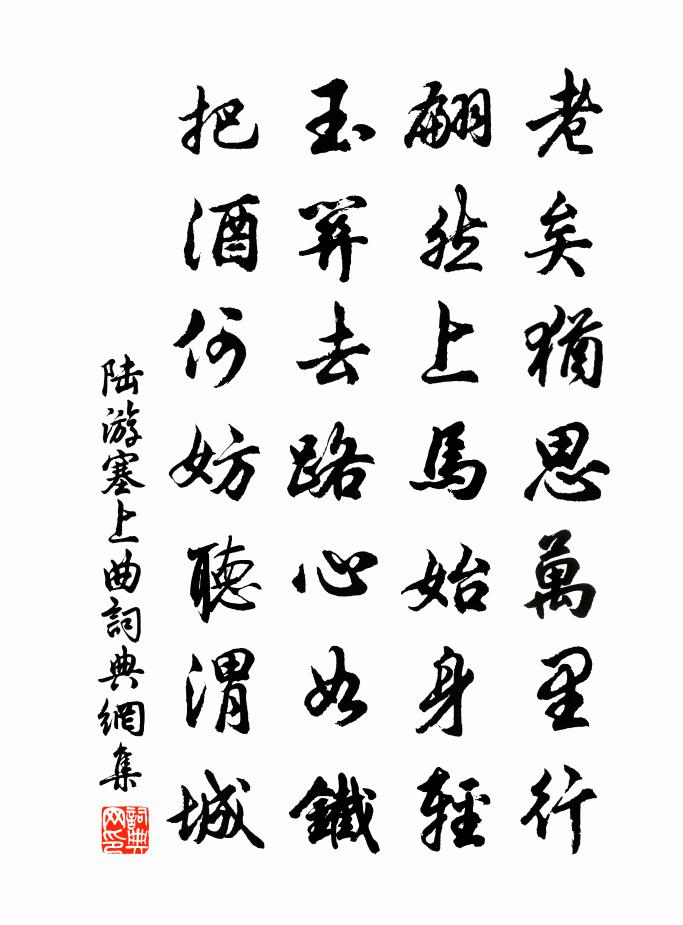 老矣猶思萬里行
翩然上馬始身輕
玉關去路心如鐵
把酒何妨聽渭城
陸游塞上曲詞典網集
詞典网印